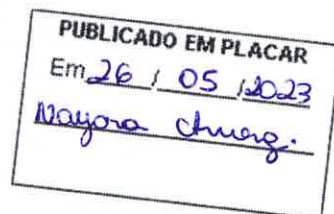 PUBLICADO EM PLACAR
Em 26 / 05 / 2023
Nayora